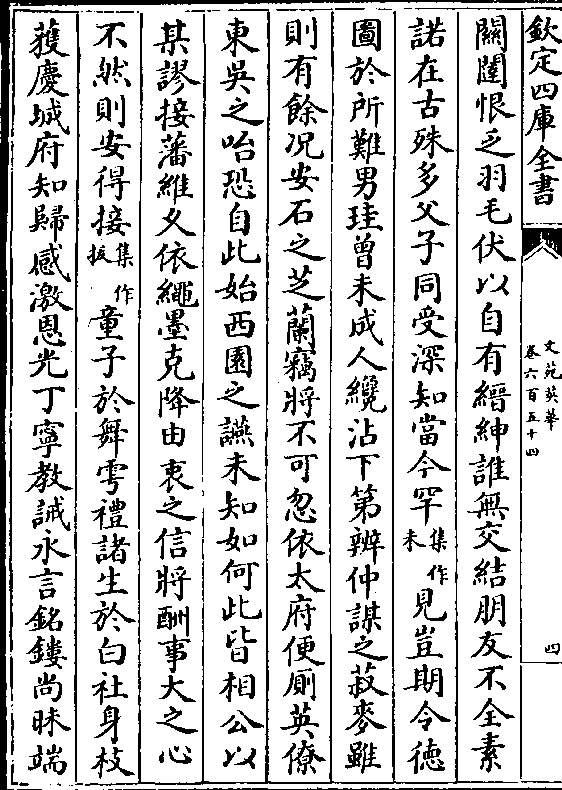 欽定四庫全書
文苑英華
卷六百五十四
四
關闥恨乏羽毛伏以自有縉紳誰無交結朋友不全素
諾在古殊多父子同受深知當今罕集作未見豈期令德
圖於所難男珪曾未成人纔沾下第辨仲謀之菽麥雖
則有餘况安石之芝蘭竊將不可忽依太府便厠英僚
東吳之咍恐自此始西園之讌未知如何此皆相公以
某謬接藩維夊依繩墨克降由衷之信將酬事大之心
不然則安得接集作拔童子於舞雩禮諸生於白社身枝
蒦慶城府知歸感激恩光丁寧教誡永言銘鏤尚昧端